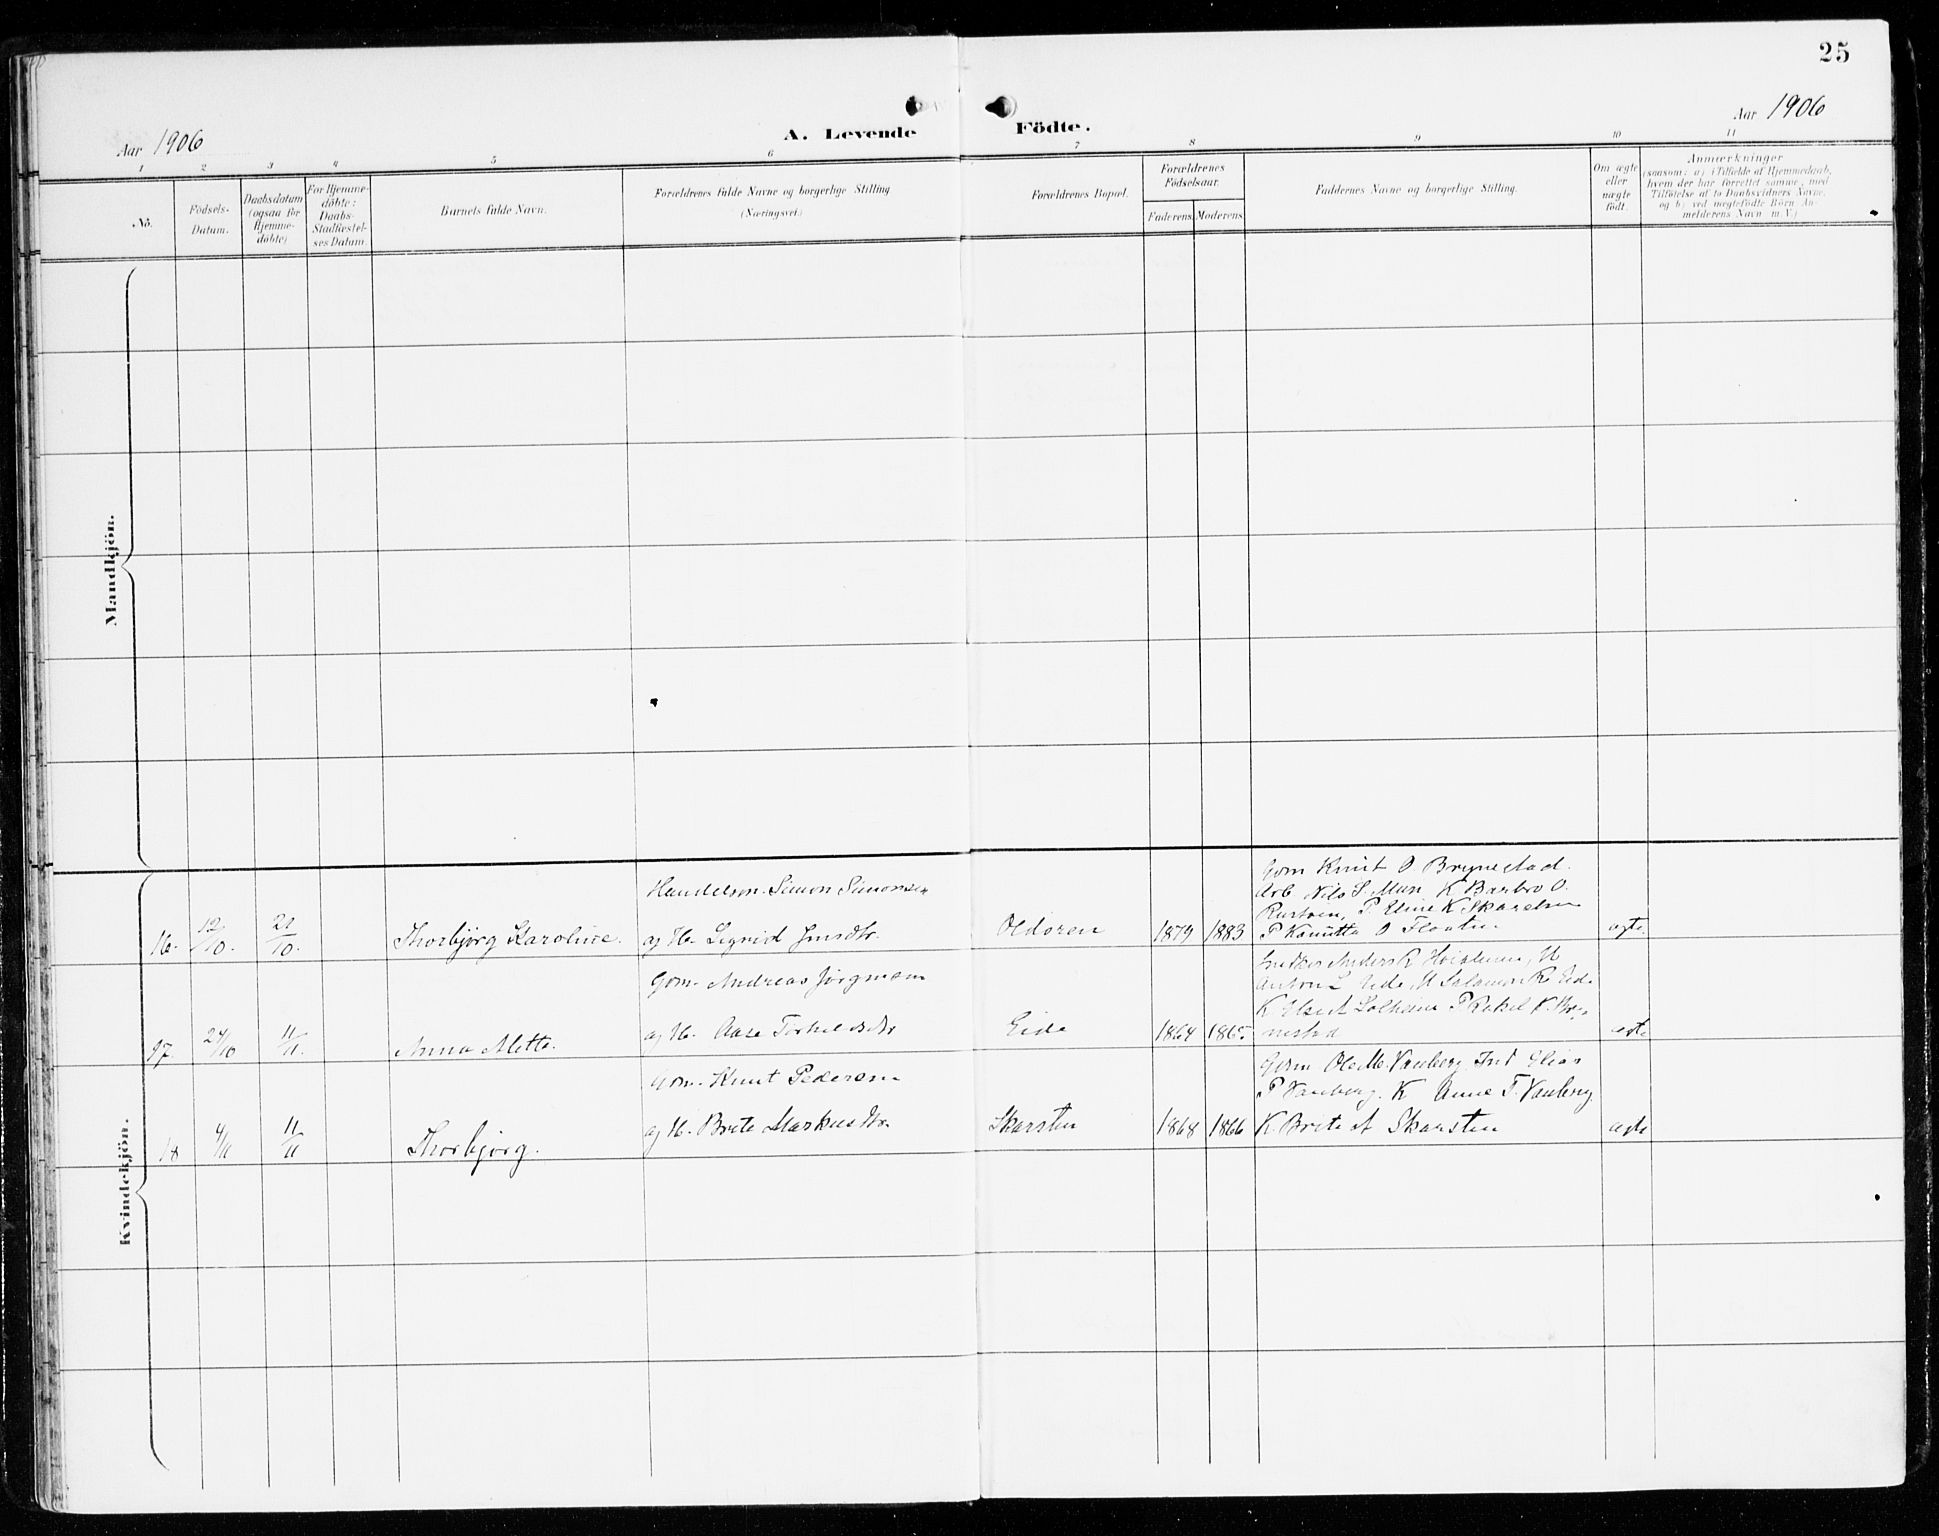 25
Aar 1906
A. Levende Födte.
Aar 1906
1 2 3 4 5 6 7 8 9 10 11
No.
Födsels-Datum.
Daabsdatum (ogsaa for Hjemme-döbte)
For Hjemme-döbte: Daabs-Stadfæstel-ses Datum.
Barnets fulde Navn.
Forældrenes fulde Navne og borgerlige Stilling (Næringsvei.)
Forældrenes Bopæl.
Forældrenes Födselsaar.
Faderens Moderens
Faddernes Navne og borgerlige Stilling.
Om ægte eller uægte födt.
Anmærkninger
(saasom: a) i Tilfælde af Hjemmedaab,
hvem der har forrettet samme, med
Tilföielse af to Daabsvidners Navne,
og b) ved uægtefödte Börn An-
melderens Navn m. V.)
Mandkjön.
Kvindekjön.
16. 12/10. 21/10. Thorbjørg Karoline.
Handelsm. Simon Simonsen
og H. Sigrid
Oldören 1879 1883
Gom Knut O Brynestad.
Arb Nils S. Muri K Barbro O.
P Eline K Skarsten
P O
ægte.
17. 24/10 11/11. Anna Mette.
Gom. Andreas Jörgensen
og H. Aase
Eide 1864 1865.
Anders R
Anton L Eide, U Salamon R Eide
K Solheim P Rakel K. Bry-
nestad
ægte
18 4/11 11/11 Thorbjørg.
Gom. Knut Pedersen
og H. Brite Markusdtr.
Skarsten 1868 1866
Gom Ole M. Vanberg. Ind Elias
P Vanberg. K Anne T. Vanberg
K Brite A Skarsten
ægte